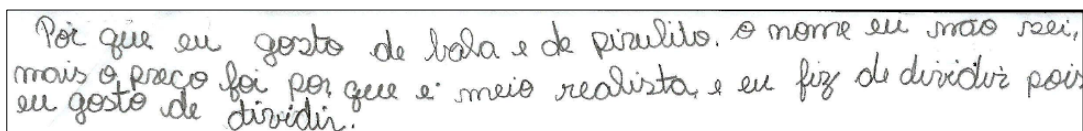 Por que eu gosto de bala e de pirulito. O nome eu não sei,
mais o preço foi por que e meio realista, e eu fiz de dividir pois
eu gosto de dividir.